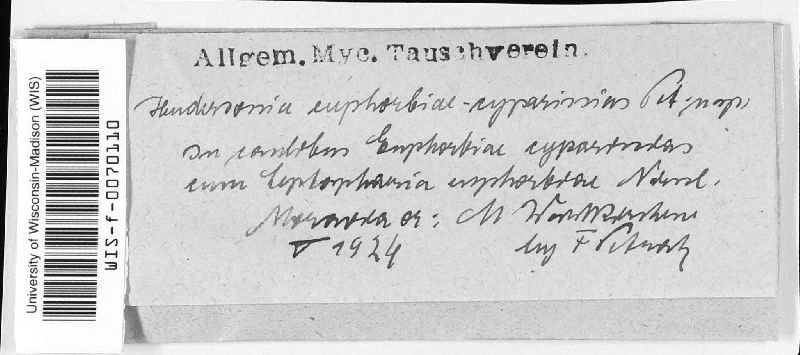 University of Wisconsin-Madison (WIS)
WIS-f-0070110
Allgem. Myc. Tauschverein.
Hendersonia euphorbiae-cyparissias Pet. n. sp.
In caulibus Euphorbiae cyparissias
cum Leptosphaeria euphorbiae Niessl.
Moravia or: M Weisskirchen
V 1924 leg F Petrak